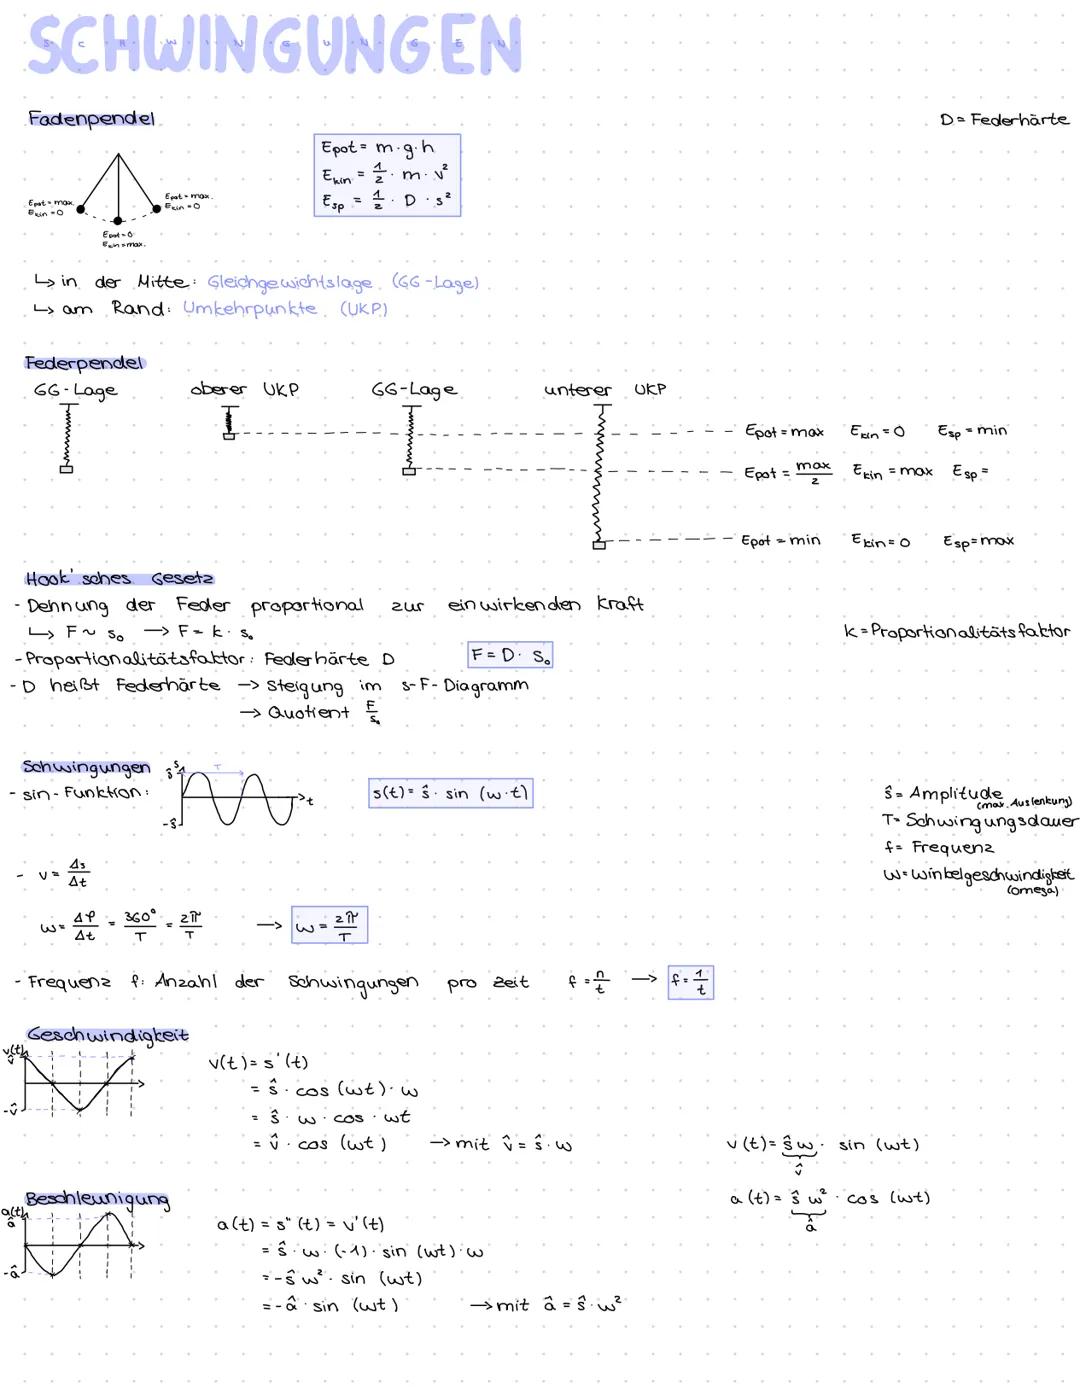 SCHWINGUNGEN
Fadenpendel
D = Federhärte
Epot = m·g·h
Ekin = 1/2 · m · v²
Esp = 1/2 · D · s²
Epot = max.
Ekin = 0
Epot = max.
Ekin = 0
Epot = 0
Ekin = max.
↳ in der Mitte: Gleichgewichtslage (GG-Lage)
↳ am Rand: Umkehrpunkte (UKP)
Federpendel
GG-Lage oberer UKP GG-Lage unterer UKP
Epot = max Ekin = 0 Esp = min
Epot = max/2 Ekin = max Esp =
Epot = min Ekin = 0 Esp = max
Hook'sches Gesetz
- Dehnung der Feder proportional zur einwirkenden Kraft
↳ F ~ s₀ → F = k · s₀
k = Proportionalitätsfaktor
- Proportionalitätsfaktor: Federhärte D
F = D · s₀
- D heißt Federhärte → Steigung im s-F-Diagramm
→ Quotient F/s₀
Schwingungen
- sin-Funktion:
s
ŝ
T
t
-ŝ
s(t) = ŝ · sin (ω·t)
ŝ = Amplitude
(max. Auslenkung)
T = Schwingungsdauer
f = Frequenz
ω = Winkelgeschwindigkeit
(omega)
- v = Δs/Δt
ω = Δφ/Δt = 360°/T = 2π/T → ω = 2π/T
- Frequenz f: Anzahl der Schwingungen pro Zeit f = n/t → f = 1/t
Geschwindigkeit
v(t)
v̂
-v̂
v(t) = s'(t)
= ŝ · cos (ωt) · ω
= ŝ · ω · cos · ωt
= v̂ · cos (ωt) → mit v̂ = ŝ · ω
v(t) = ŝω · sin (ωt)
v̂
a(t) = ŝω² · cos (ωt)
â
Beschleunigung
a(t)
â
-â
a(t) = s"(t) = v'(t)
= ŝ · ω · (-1) · sin (ωt) · ω
= -ŝω² · sin (ωt)
= -â · sin (ωt) → mit â = ŝ · ω²